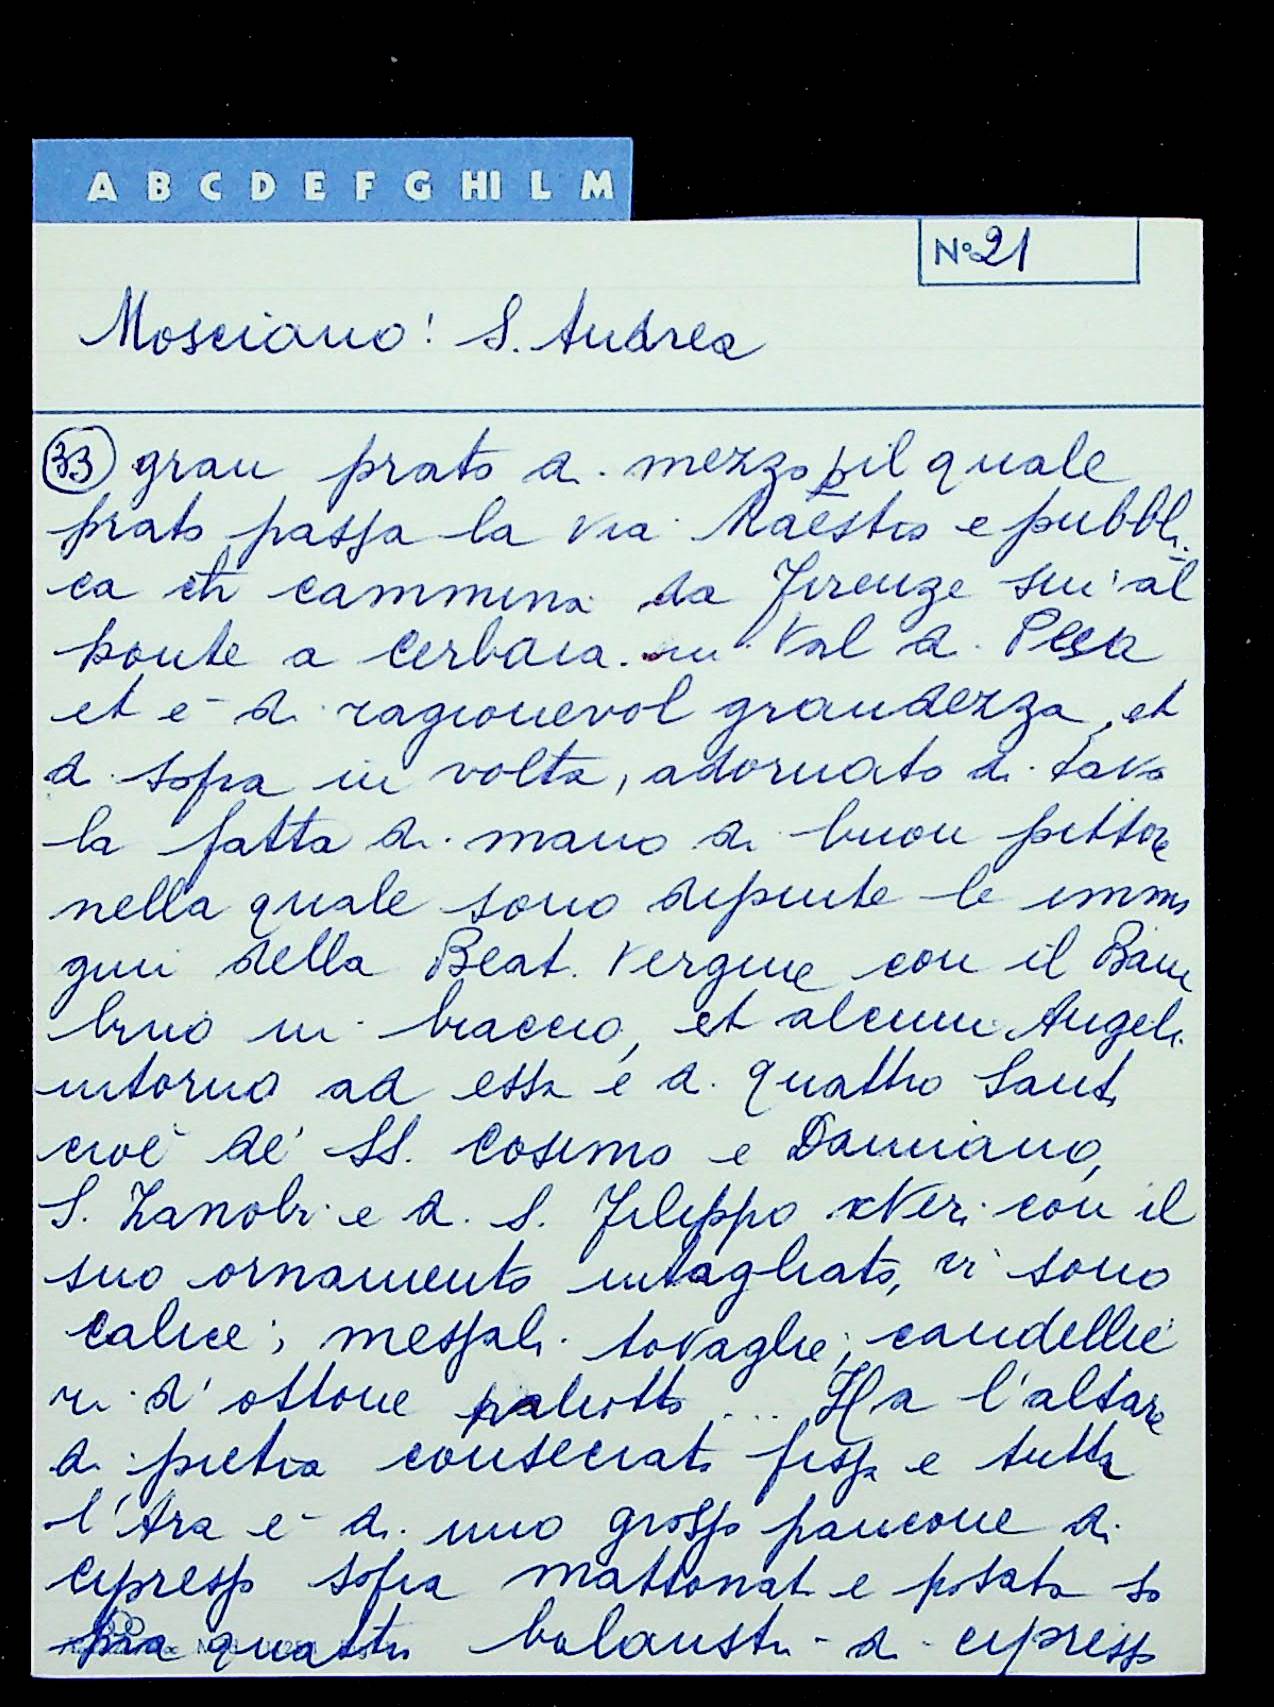 A B C D E F G HI L M
N° 21
Mosciano: S. Andrea
33 gran prato di mezzo il quale
prato passa la via Maestra e pubbli
ca che cammina da Firenze sin' al
ponte a Cerbaia in Val di Pesa
et è di ragionevol grandezza, et
di sopra in volta, adornato di tavo
la fatta di mano di buon pittore
nella quale sono depinte le imma
gini della Beat. Vergine con il Bam
bino in braccio, et alcuni Angeli
intorno ad essa e di quattro Santi
cioè de' SS. Cosimo e Damiano,
S. Zanobi e di S. Filippo Neri con il
suo ornamento intagliato, vi sono
calice, messali tovaglie, candellie
ri d'ottone paliotto ... Ha l'altare
di pietra consecrata fissa e tutta
l'Ara è di uno grosso pancone di
cipresso sopra mattonato e posata so
pra quattro balaustri di cipresso